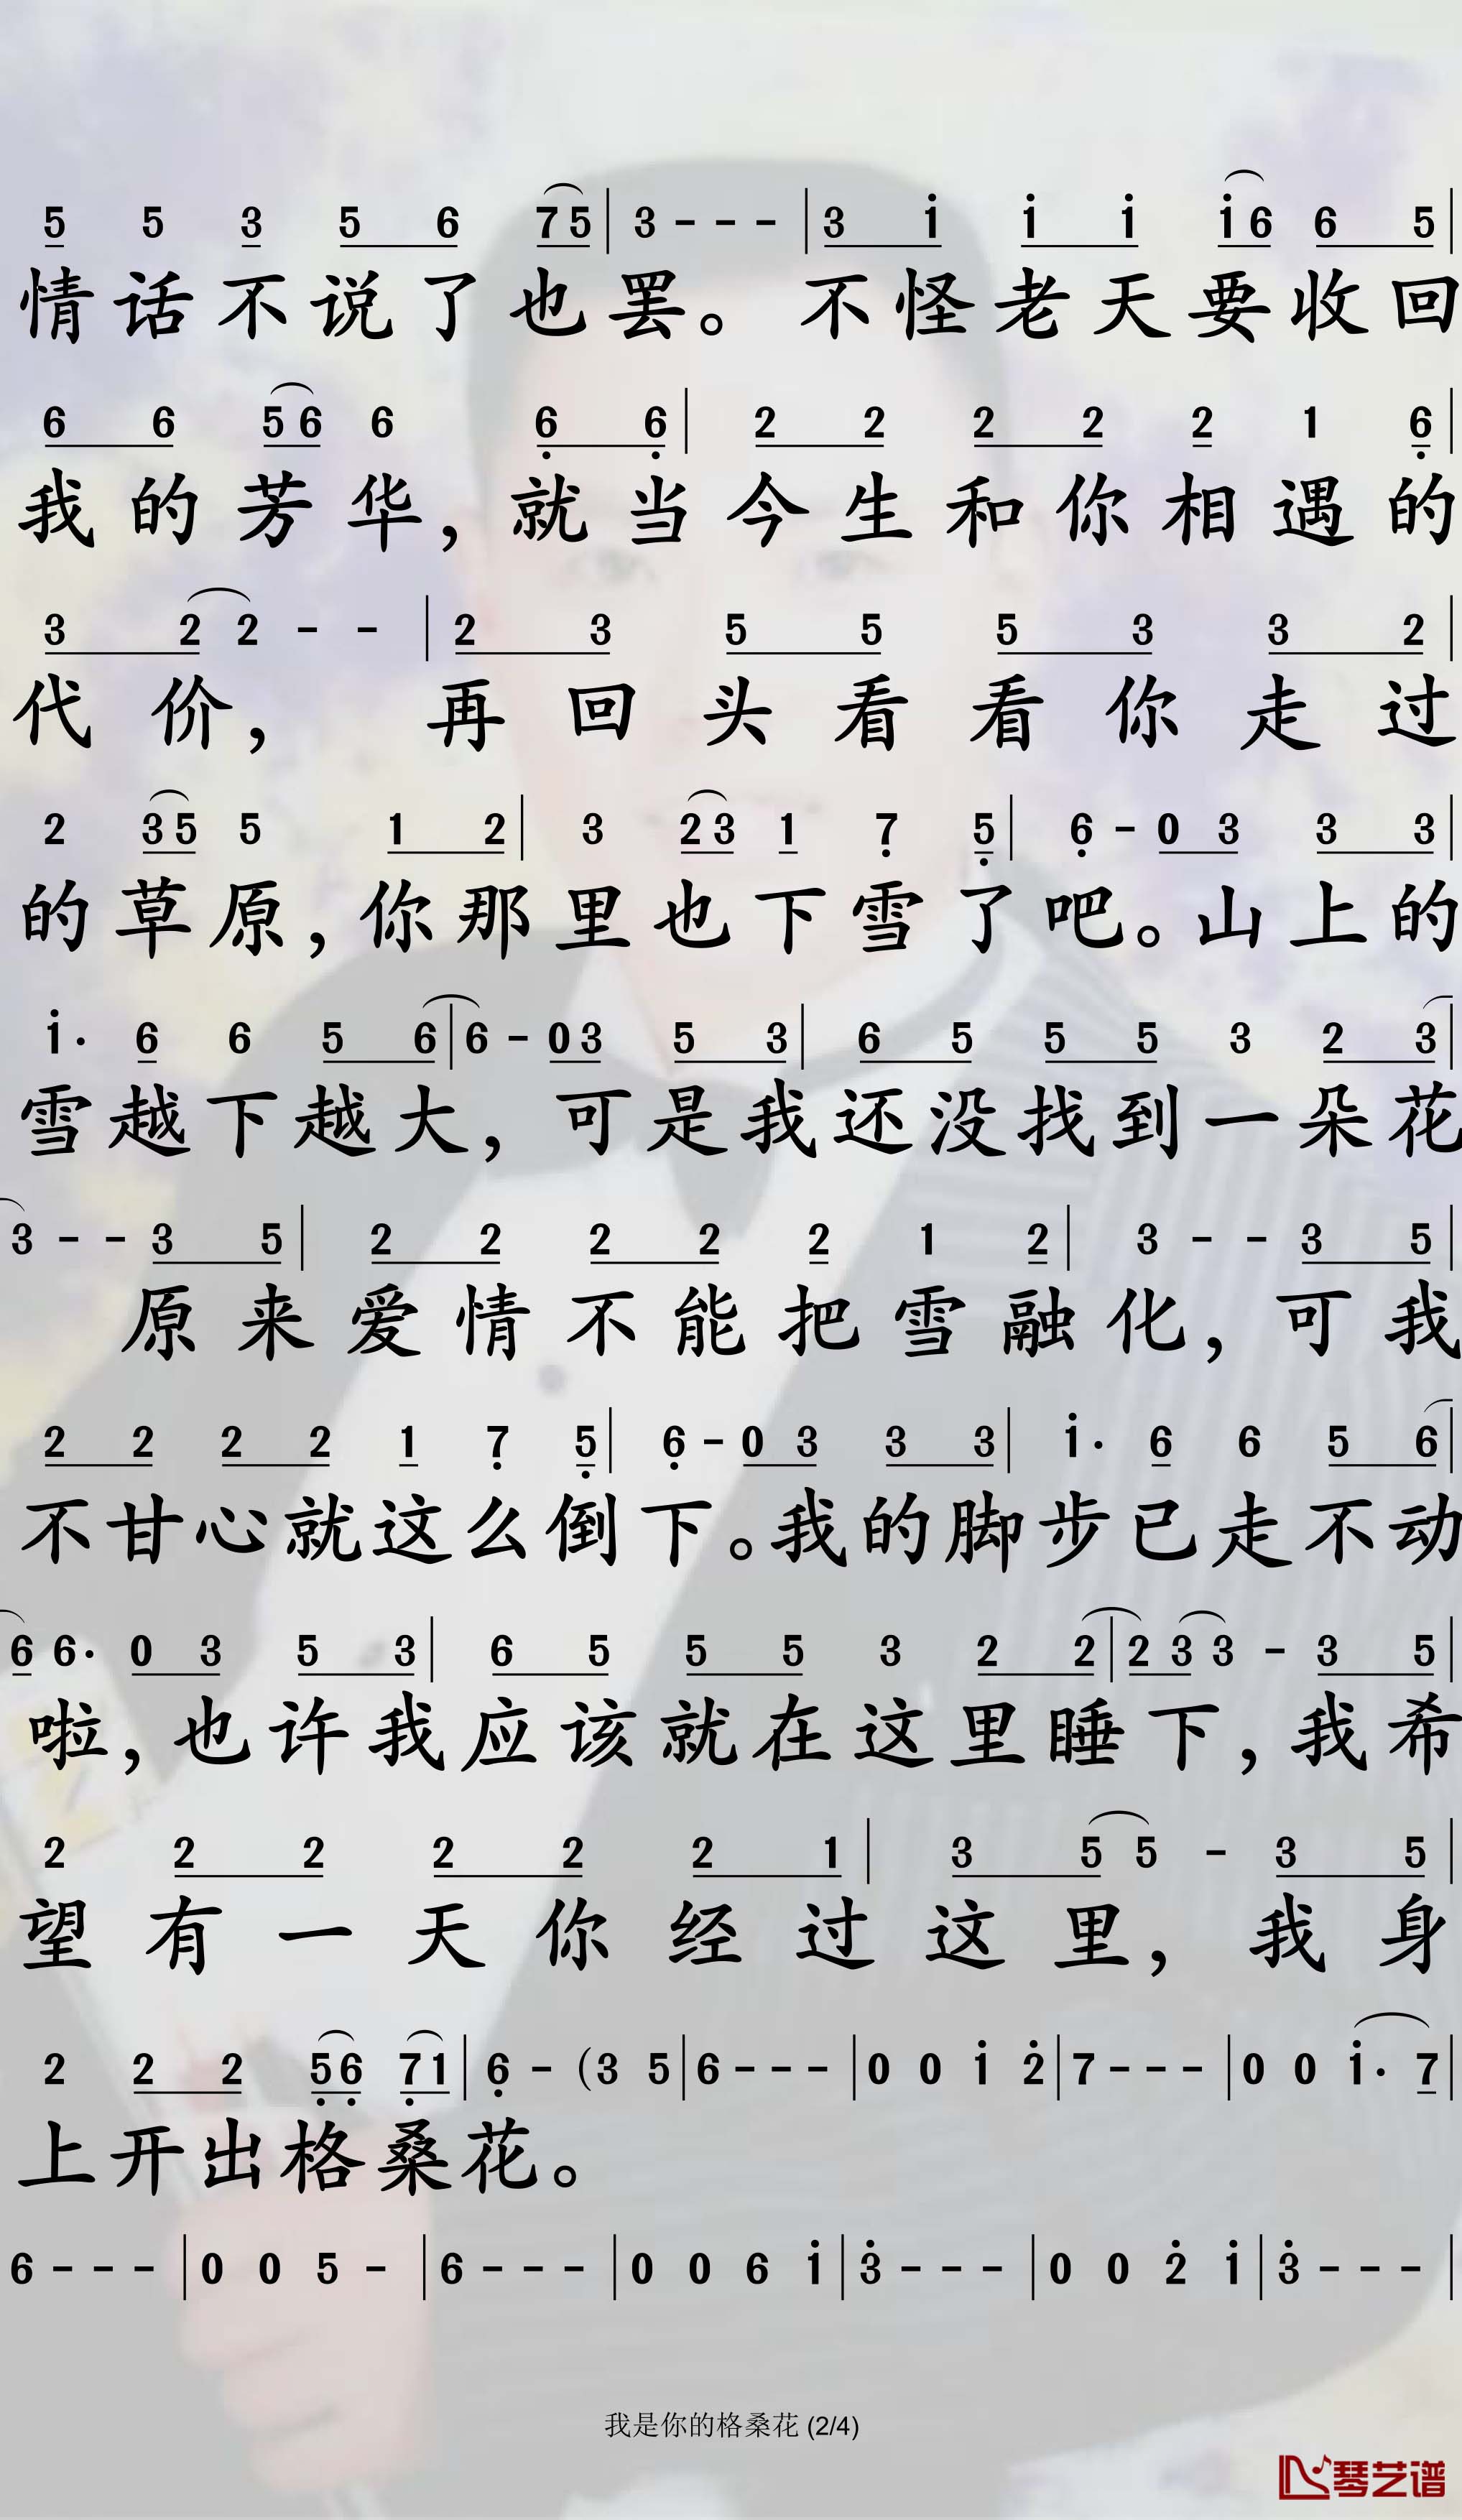 5 5 3 5 6 7 5 | 3 - - - | 3 i i i i 6 6 5 |
情话不说了也罢。不怪老天要收回
6 6 5 6 6 6 6 | 2 2 2 2 2 1 6 |
我的芳华，就当今生和你相遇的
3 2 2 - - | 2 3 5 5 5 3 3 2 |
代价，再回头看看你走过
2 3 5 5 1 2 | 3 2 3 1 7 5 | 6 - 0 3 3 3 |
的草原，你那里也下雪了吧。山上的
i · 6 6 5 6 | 6 - 0 3 5 3 | 6 5 5 5 3 2 3 |
雪越下越大，可是我还没找到一朵花
3 - - 3 5 | 2 2 2 2 2 1 2 | 3 - - 3 5 |
原来爱情不能把雪融化，可我
2 2 2 2 1 7 5 | 6 - 0 3 3 3 | i · 6 6 5 6 |
不甘心就这么倒下。我的脚步已走不动
6 6 · 0 3 5 3 | 6 5 5 5 3 2 2 | 2 3 3 - 3 5 |
啦，也许我应该就在这里睡下，我希
2 2 2 2 2 2 1 | 3 5 5 - 3 5 |
望有一天你经过这里，我身
2 2 2 5 6 7 1 | 6 - (3 5 | 6 - - - | 0 0 i 2 | 7 - - - | 0 0 i · 7 |
上开出格桑花。
6 - - - | 0 0 5 - | 6 - - - | 0 0 6 i | 3 - - - | 0 0 2 i | 3 - - - |
我是你的格桑花 (2/4)
琴艺谱